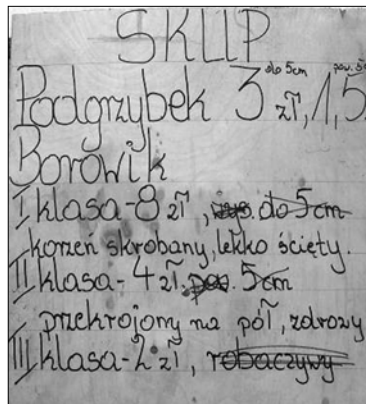 SKUP
do 5cm pow. 5
Podgrzybek 3 zł, 1,5
Borowik
I klasa-8 zł, wys. do 5cm
korzeń skrobany, lekko ścięty.
II klasa-4 zł, pow. 5cm
przekrojony na pół, zdrowy
III klasa-2 zł, robaczywy